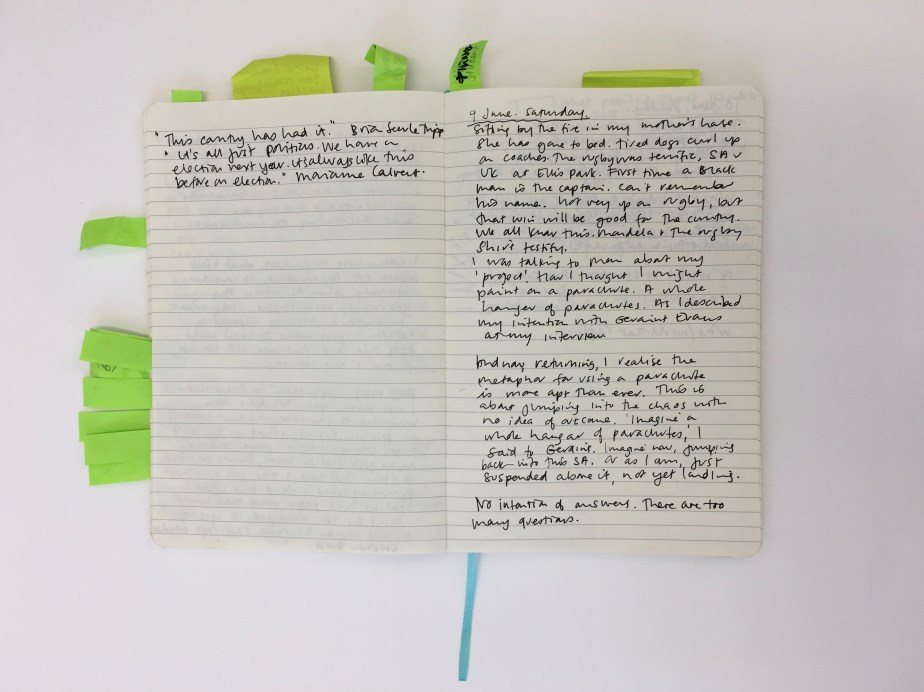 "This country has had it." Brian Searle Tripp
"It's all just politics. We have an
election next year. It's always like this
before an election." Marianne Calvert.
9 June. Saturday
Sitting by the fire in my mother's house.
She has gone to bed. Tired dogs curl up
on couches. The rugby was terrific, SA v
UK at Ellis Park. First time a Black
man is the captain. Can't remember
his name. Not very up on rugby, but
that win will be good for the country.
We all know this. Mandela & the rugby
shirt testify.
I was talking to mom about my
'project'. How I thought I might
paint on a parachute. A whole
hangar of parachutes. As I described
my intention with Geraint Evans
at my interview.
And now returning, I realise the
metaphor for using a parachute
is more apt than ever. This is
about jumping into the chaos with
no idea of outcome. 'Imagine a
whole hangar of parachutes,' I
said to Geraint. Imagine now, jumping
back into this SA. Or as I am, just
suspended above it, not yet landing.
No intention of answers. There are too
many questions.